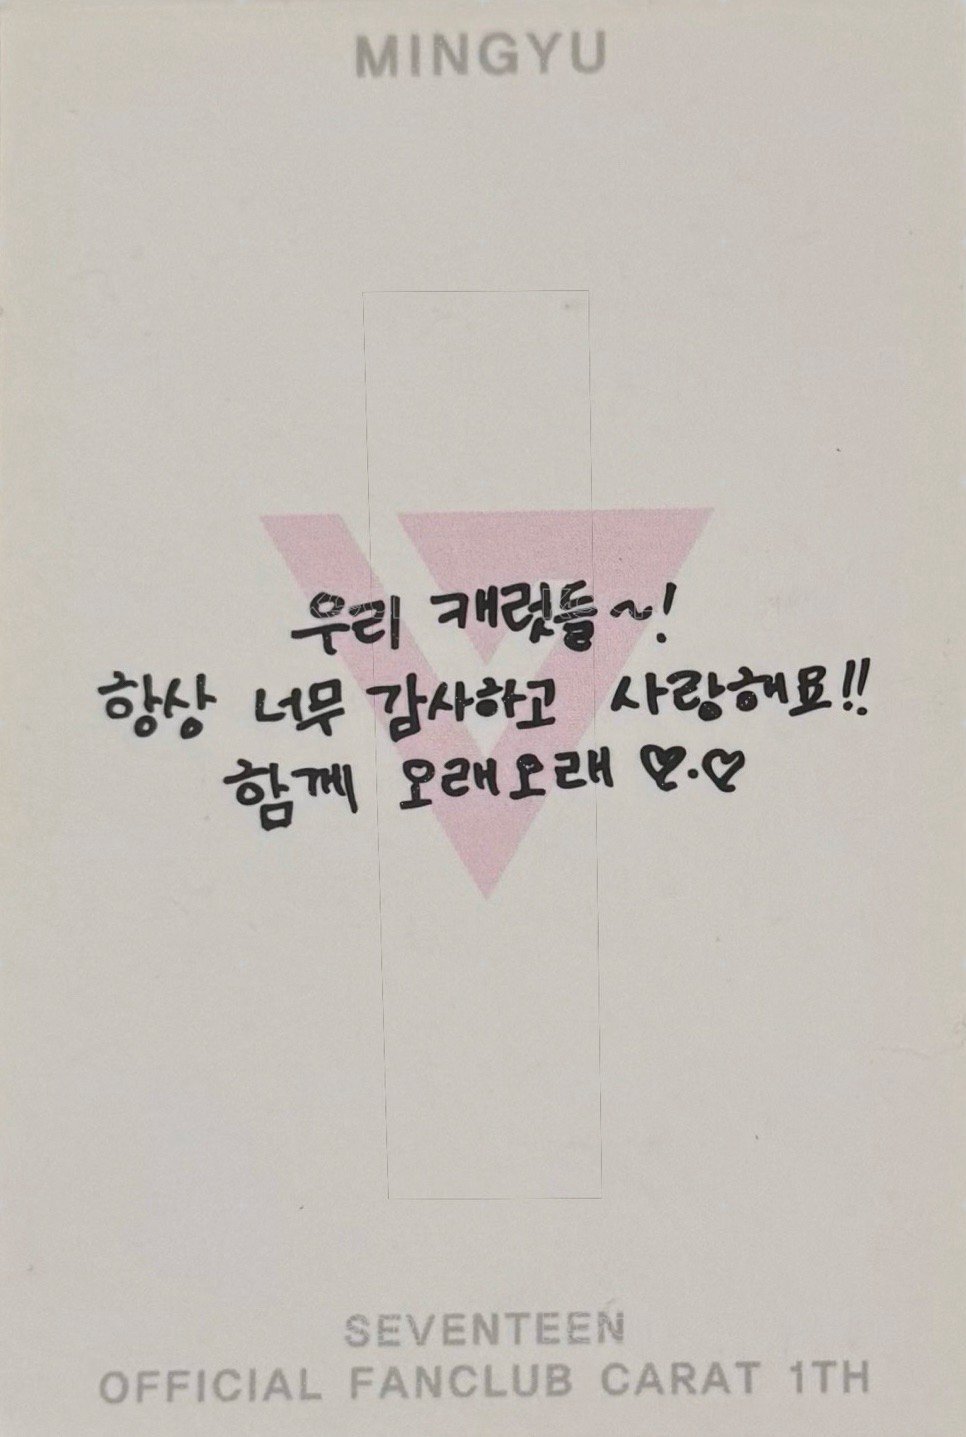 MINGYU
우리 캐럿들~!
항상 너무 감사하고 사랑해요!!
함께 오래오래 ♡.♡
SEVENTEEN
OFFICIAL FANCLUB CARAT 1TH